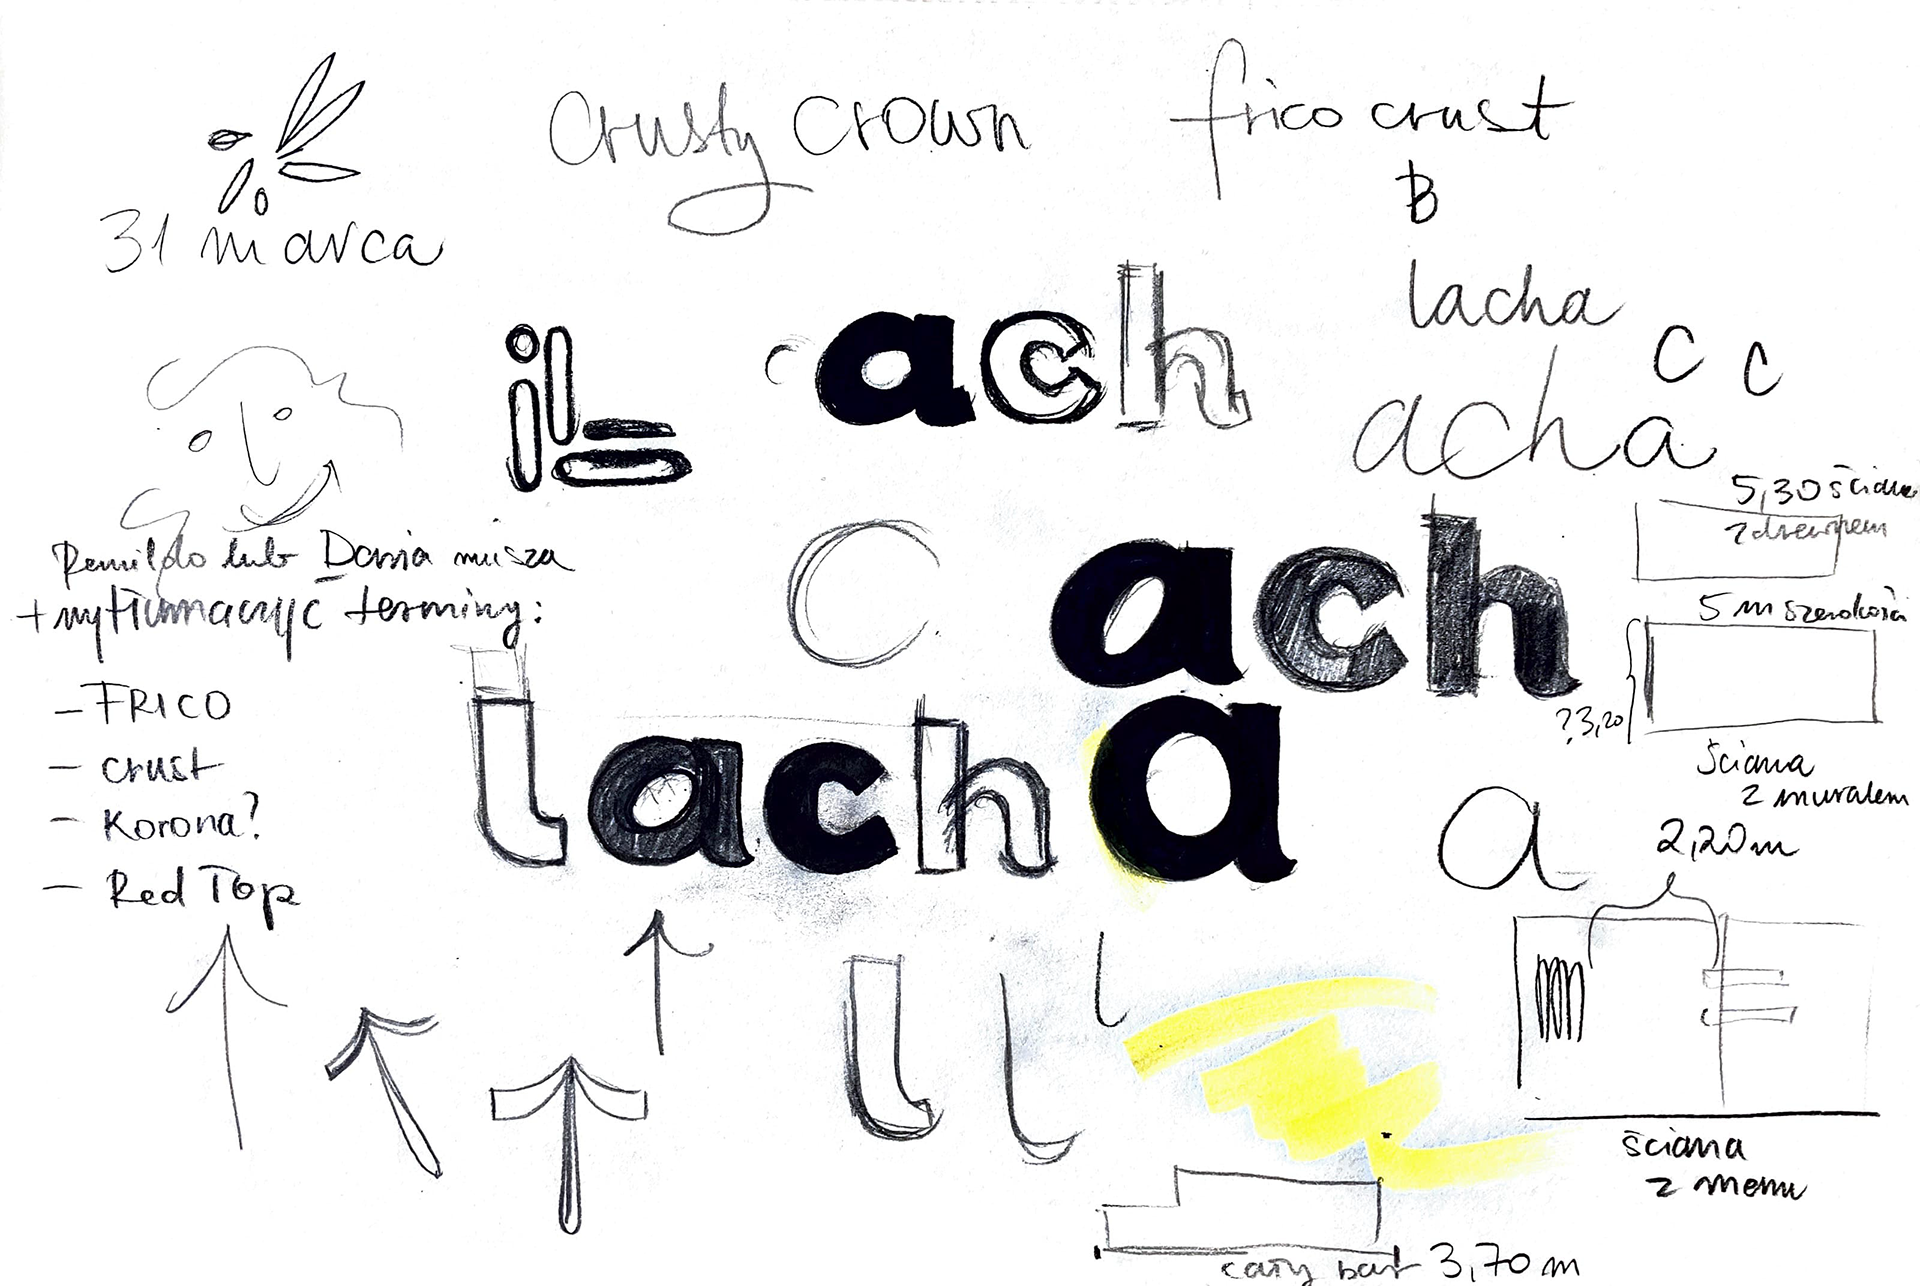 31 marca
crusty crown
frico crust
B
lacha
c c
acha
ach
c
il
c
ach
lacha
a
lub Daria musza
+ wytłumaczyć terminy:
- FRICO
- crust
- Korona?
- Red Top
5,30 ściana
z drewnem
5 m szerokości
? 3,20
ściana
z muralem
2,20m
l
l
l
ściana
z menu
cały bar 3,70 m